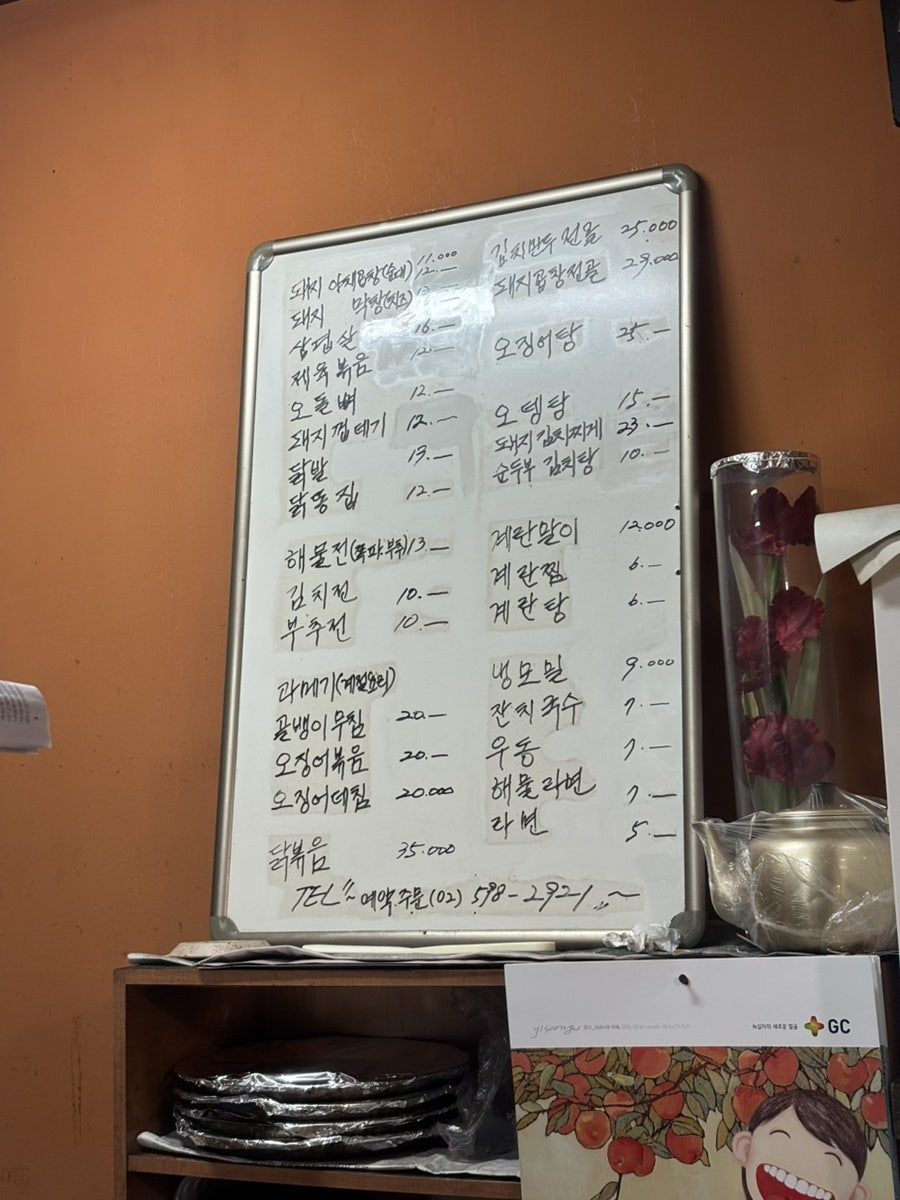 돼지 야채곱창(순대) 11.000
12.—
돼지 막창(치즈)
삼겹살 16.—
제육볶음 12.—
오돌뼈 12.—
돼지껍데기 12.—
닭발 13.—
닭똥집 12.—
해물전(쪽파.부추) 13.—
김치전 10.—
부추전 10.—
과메기(계절요리)
골뱅이무침 20.—
오징어볶음 20.—
오징어데침 20.000
닭볶음 35.000
김치만두전골 25.000
돼지곱창전골 29.000
오징어탕 25.—
오뎅탕 15.—
돼지김치찌게 23.—
순두부 김치탕 10.—
계란말이 12.000
계란찜 6.—
계란탕 6.—
냉모밀 9.000
잔치국수 7.—
우동 7.—
해물라면 7.—
라면 5.—
TEL 예약.주문(02) 598-2921
녹십자의 새로운 얼굴 GC